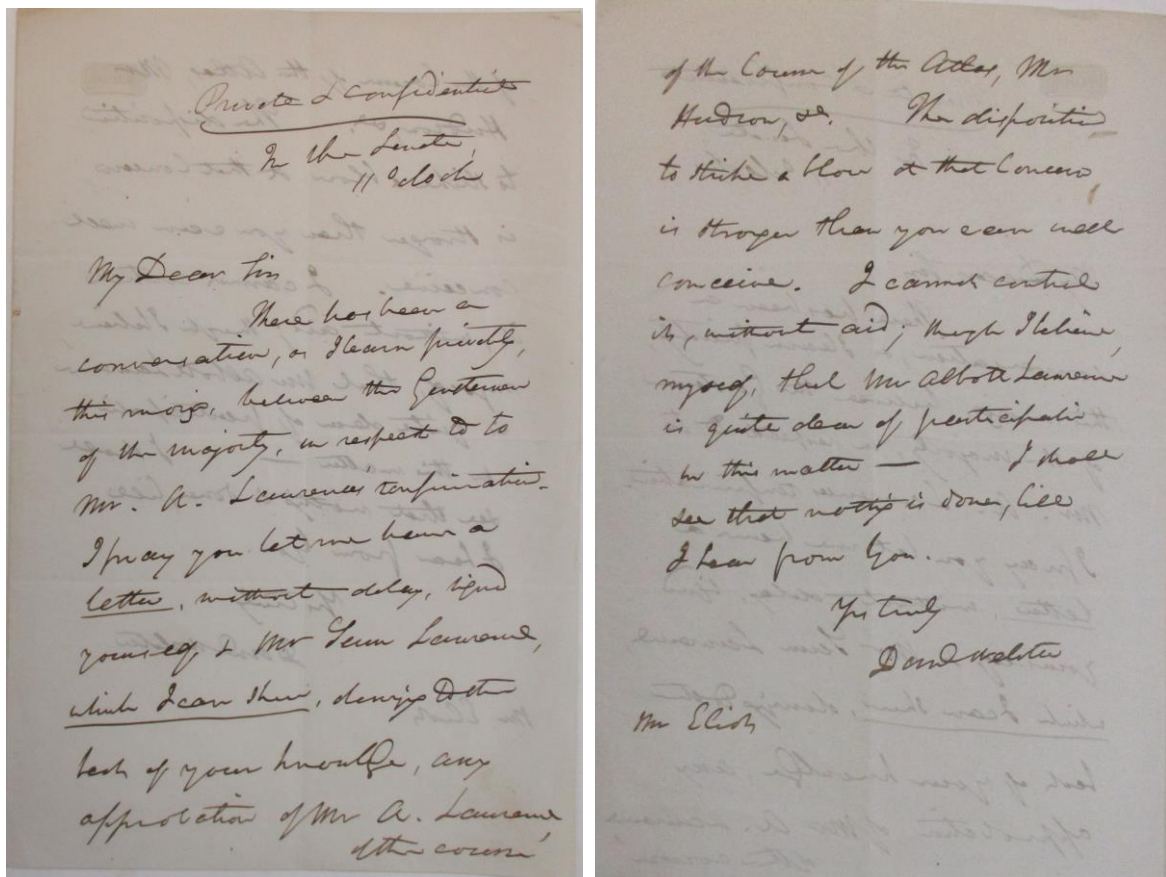 Private & confidential
In the Senate,
11 O'clock
My Dear Sir
There has been a
conversation, as I learn privately,
this morg, between the Gentlemen
of the majority, in respect to
Mr. A. Lawrences confirmation.
I pray you let me have a
letter, without delay, signd
yourself & Mr Saml Lawrence,
which I can shew, denying to the
best of your knowledge, any
approbation of Mr A. Lawrence,
of the course
of the Course of the Atlas, Mr
Hudson, &c. The disposition
to strike a blow at that Concern
is stronger than you can well
conceive. I cannot control
it, without aid; though I believe,
myself, that Mr Abbott Lawrence
is quite clear of participation
in this matter — I shall
see that nothg is done, till
I hear from you.
Yrs truly
Danl Webster
Mr Eliot